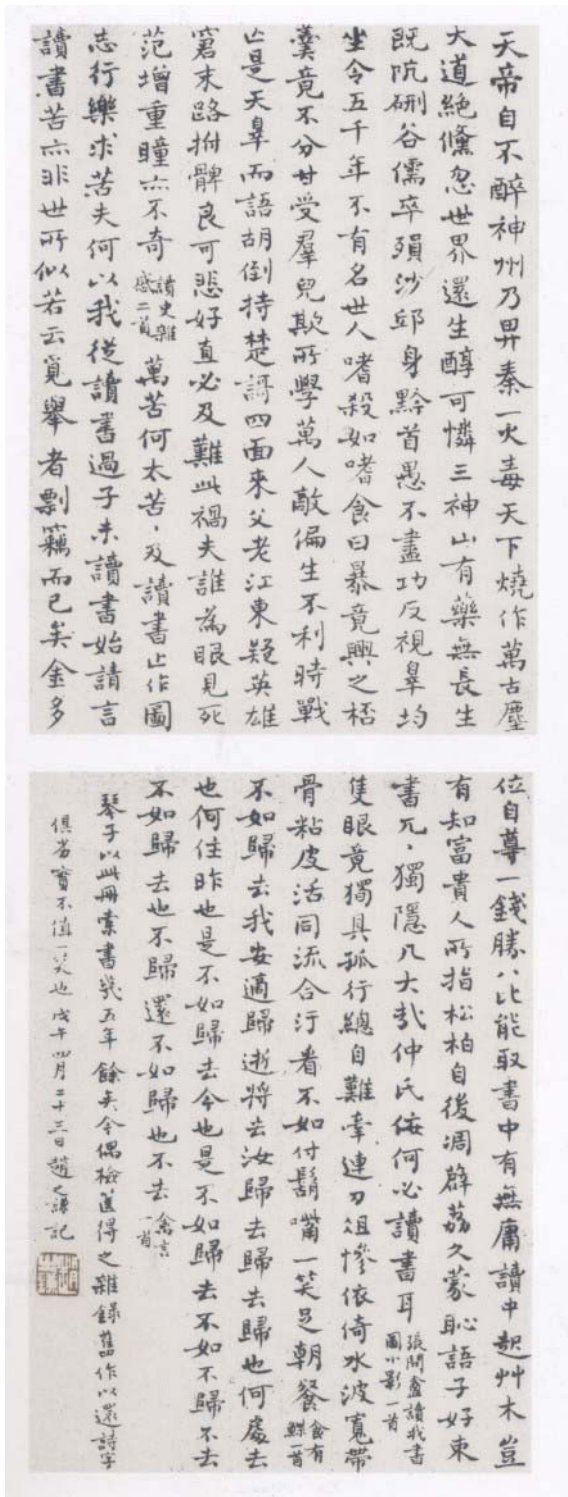 天帝自不醉神州乃畀秦一火毒天下燒作萬古塵
大道絕儵忽世界還生醇可憐三神山有藥無長生
既阬硎谷儒卒殞沙邱身黔首愚不盡功反視辠均
坐令五千年不有名世人嗜殺如嗜食曰暴竟興之桮
羹竟不分甘受羣兒欺所學萬人敵偏生不利時戰
亡是天辠而語胡倒持楚謌四面來父老江東疑英雄
窘末路拊髀良可悲好直必及難此禍夫誰為眼見死
范增重瞳亦不奇讀史雜感二首萬苦何太苦、及讀書止作圖
志行樂求苦夫何以我從讀書過子未讀書始請言
讀書苦亦非世所似若云覓舉者剽竊而已矣金多
位自尊一錢勝八比能取書中有無庸讀中起艸木豈
有知富貴人所指松柏自後凋薜荔久蒙恥語子好束
書兀、獨隱几大哉仲氏佞何必讀書耳張問盦讀我書圖小影一首
隻眼竟獨具孤行總自難牽連刀俎慘依倚水波寬帶
骨粘皮活同流合汙看不如付鬍嘴一笑足朝餐食有鰈一首
不如歸去我安適歸逝將去汝歸去歸去歸也何處去
也何住昨也是不如歸去今也是不如歸去不如不歸不去
不如歸去也不歸還不如歸也不去禽言一首
琴子以此冊索書幾五年餘矣今偶檢篋得之雜錄舊作以還詩字
俱劣實不值一笑也戊午四月二十三日趙之謙記